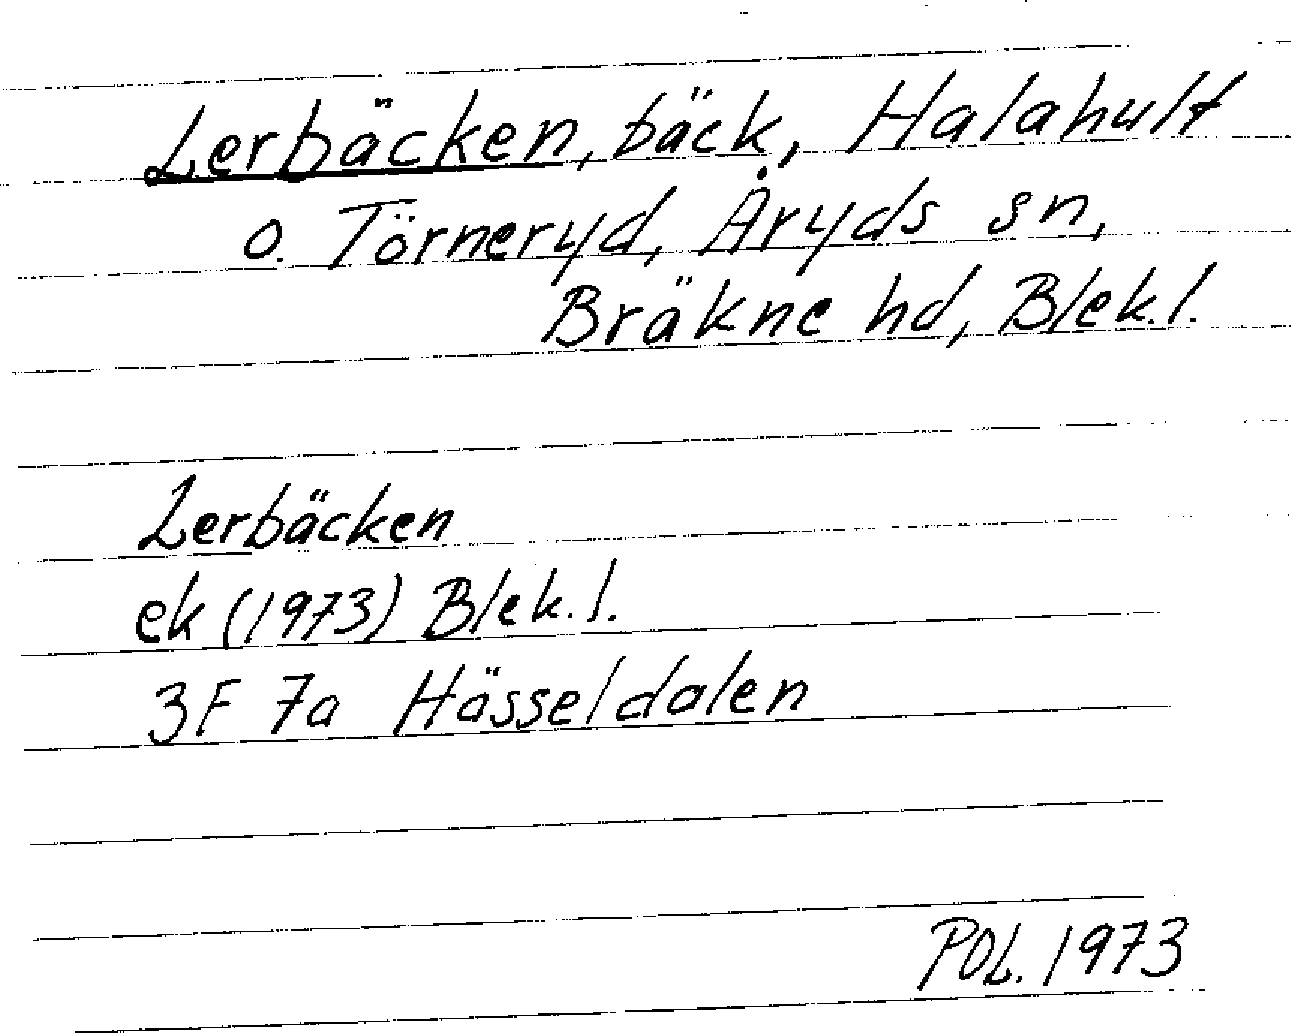 Lerbäcken, bäck, Halahult
o. Törneryd, Åryds sn,
Bräkne hd, Blek.l.
Lerbäcken
ek (1973) Blek.l.
3F 7a Hässeldalen
POL. 1973